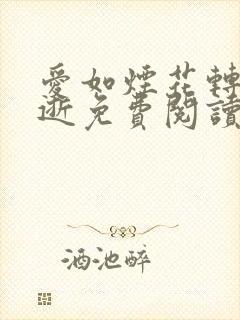 愛如煙花轉
逝免費閱讀
酒池醉